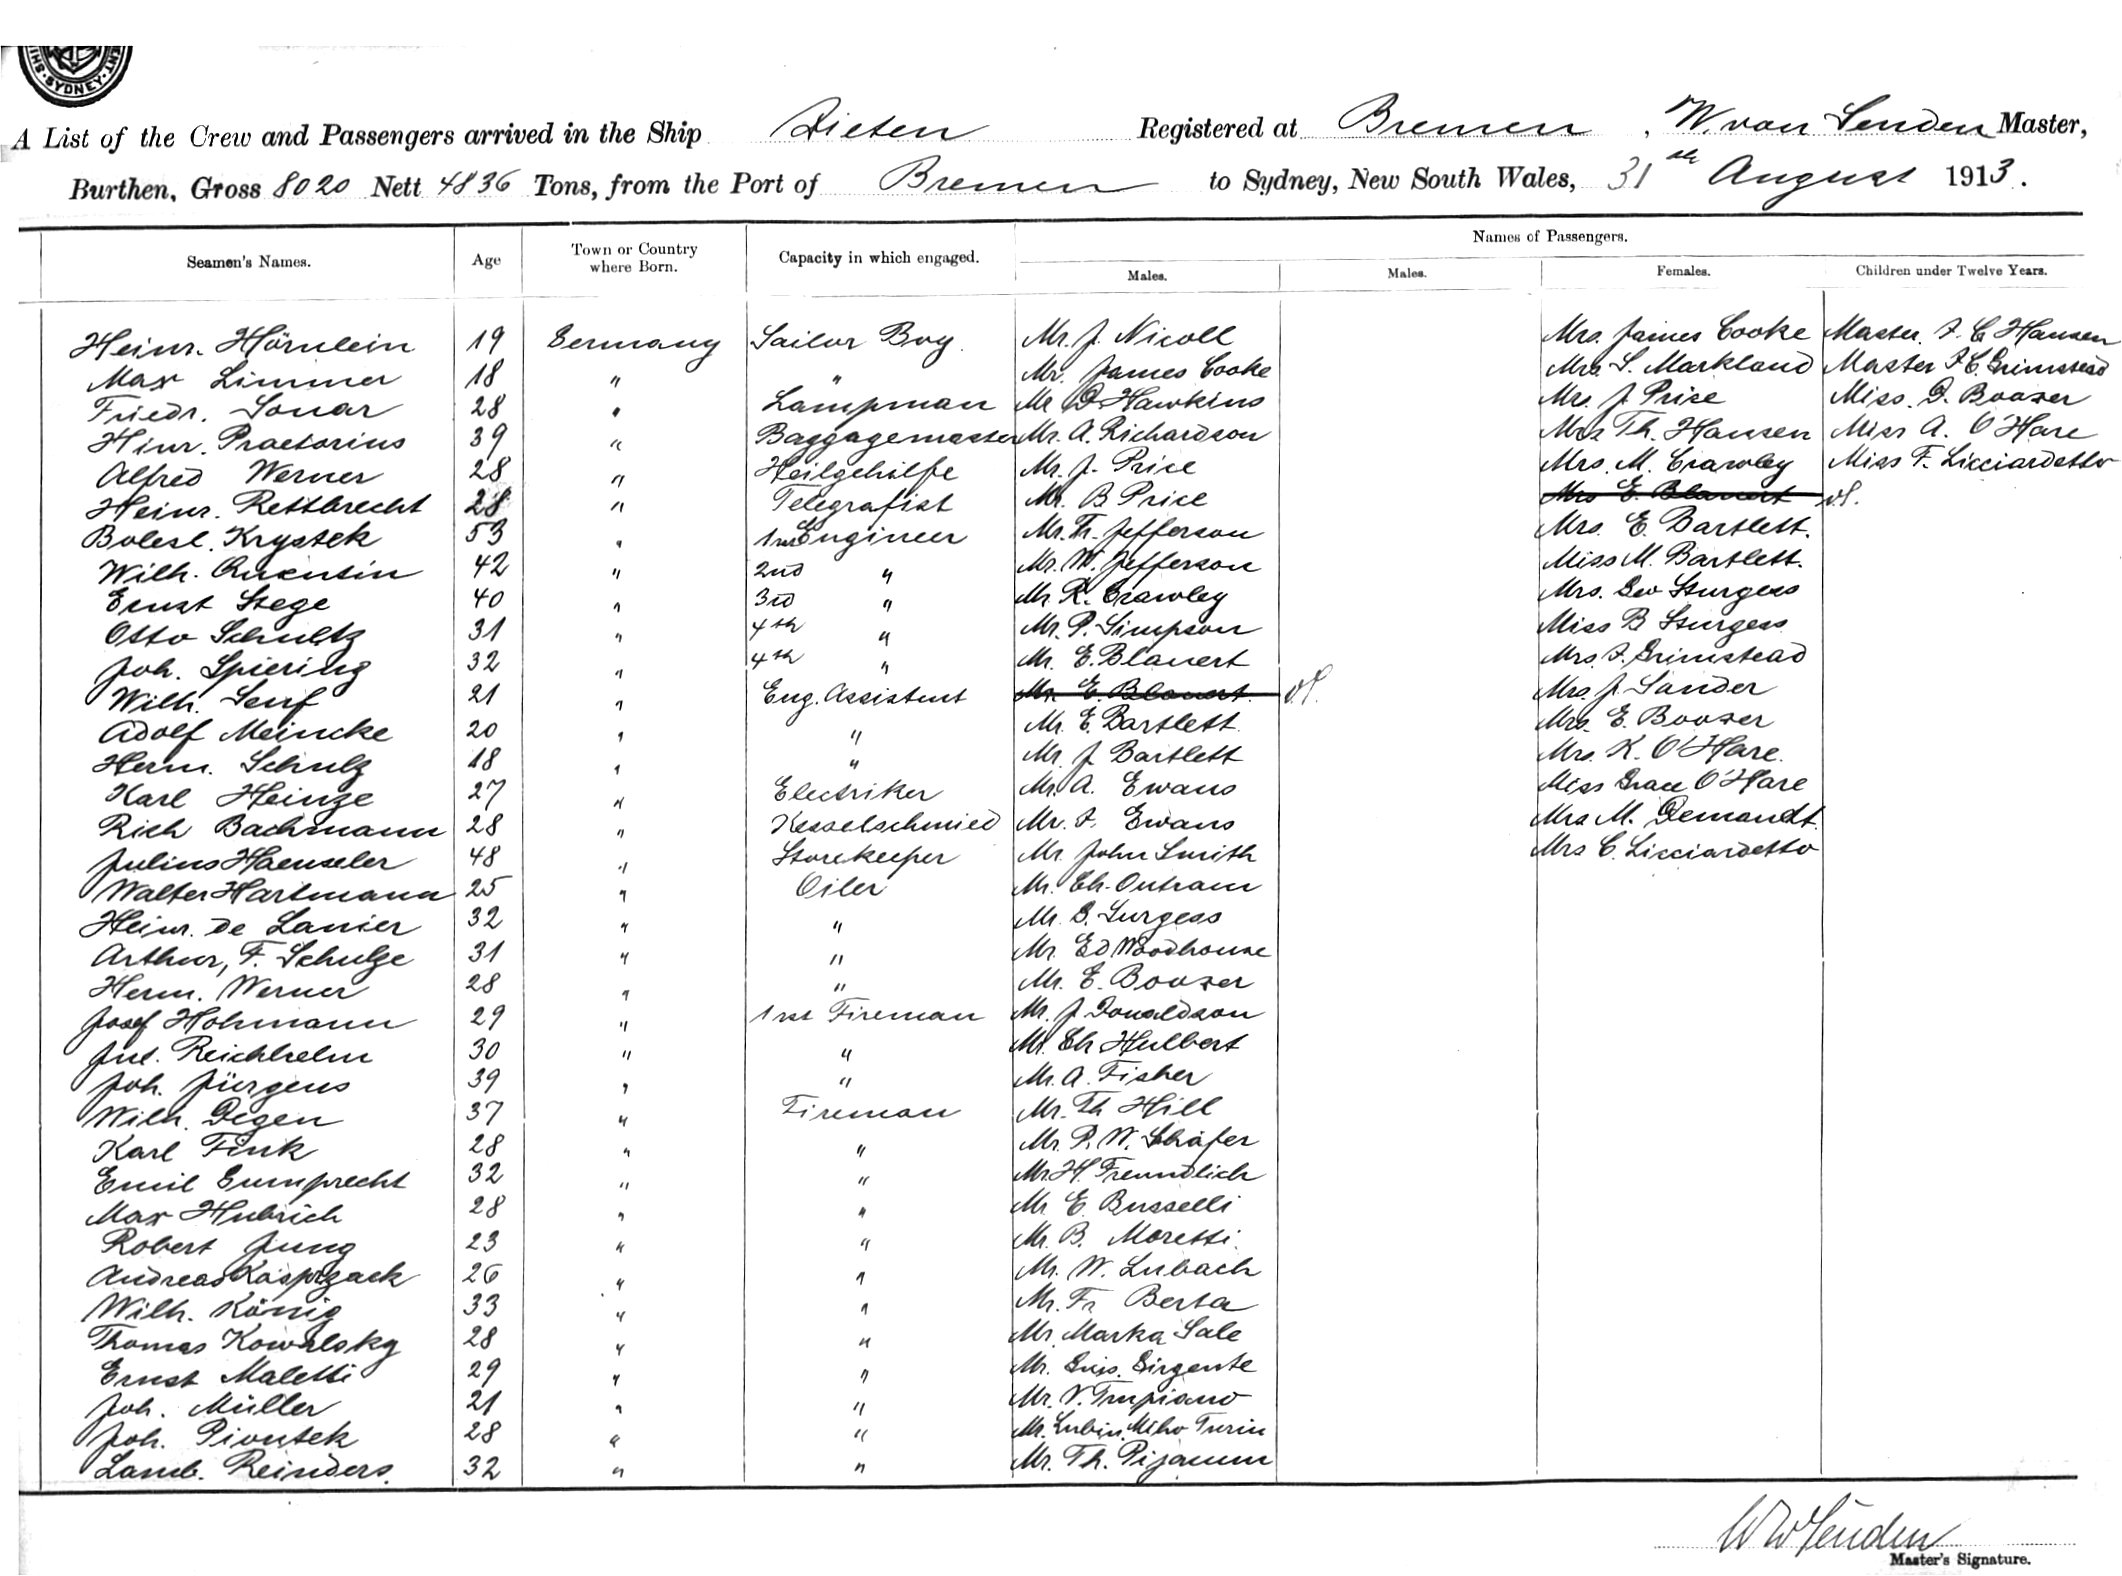 SYDNEY
A List of the Crew and Passengers arrived in the Ship Zieten Registered at Bremen, W. van Senden Master,
Burthen, Gross 8020 Nett 4836 Tons, from the Port of Bremen to Sydney, New South Wales, 31th August 1913.
Names of Passengers.
Seamen's Names. Age Town or Country where Born. Capacity in which engaged. Males. Males. Females. Children under Twelve Years.
Heinr. Hörnlein 19 Germany Sailor Boy. Mr. J. Nicoll Mrs. James Cooke Master. F. C Hansen
Max Limmer 18 " " Mr. James Cooke Mrs. S. Markland Master F. C. Grimstead
Friedr. Sonar 28 " Lampman Mr D. Hawkins Mrs. J. Price Miss. D. Booxer
Hinr. Praetorius 39 " Baggagemaster Mr. A. Richardson Mrs Th. Hansen Miss A. O'Hare
Alfred Werner 28 " Heilgehilfe Mr. J. Price Mrs. M. Crawley Miss F. Licciardetto
Heinr. Rettbrecht 28 " Telegrafist Mr. B Price Mrs E. Blauert
Bolesl. Krystek 53 " 1st Engineer Mr. Fr. Jefferson Mrs. E. Bartlett.
Wilh. Quentin 42 " 2nd " Mr. W. Jefferson Miss M. Bartlett.
Ernst Stege 40 " 3rd " Mr R. Crawley Mrs. Geo Sturgess
Otto Schultz 31 " 4th " Mr. P. Simpson Miss B Sturgess
Joh. Spiering 32 " 4th " Mr. E. Blauert Mrs. F. Grimstead
Wilh. Senf 21 " Eng. Assistent Mr. E. Blauert. Mrs. J. Sander
Adolf Meincke 20 " " Mr. E. Bartlett. Mrs. E. Booxer
Herm. Schulz 18 " " Mr. J. Bartlett Mrs. K. O'Hare.
Karl Heinze 27 " Electriker Mr. A. Ewans Miss Grace O'Hare
Rich Bachmann 28 " Kesselschmied Mr. F. Ewans Mrs M. Demandt.
Julius Haenseler 48 " Storekeeper Mr. John Smith Mrs C. Licciardetto
Walter Hartmann 25 " Oiler Mr. Ch. Outram
Heinr. de Lanier 32 " " Mr. G. Surgess
Arthur, F. Schulze 31 " " Mr. Ed Woodhouse
Herm. Werner 28 " " Mr. E. Booxer
Josef Hohmann 29 " 1st Fireman Mr. J. Donaldson
Jul. Reichhelm 30 " " Mr. Ch Hulbert
Joh. Jürgens 39 " " Mr. A. Fisher
Wilh. Degen 37 " Fireman Mr. Th Hill
Karl Fink 28 " " Mr. P. W. Schäfer
Emil Gumprecht 32 " " Mr. H. Freundlich
Max Hubrich 28 " " Mr. E. Busselli
Robert Jung 23 " " Mr. B. Moretti.
Andreas Kasprzack 26 " " Mr. W. Lubach
Wilh. König 33 " " Mr. Fr Berta
Thomas Kowalsky 28 " " Mr. Marka Sale
Ernst Maletti 29 " " Mr. Guis. Girgente
Joh. Müller 21 " " Mr. V. Trupiano
Joh. Piontek 28 " " Mr. Lubin Miho Turin
Lamb. Reinders. 32 " " Mr. Th. Pijaumm
W v Senden
Master's Signature.